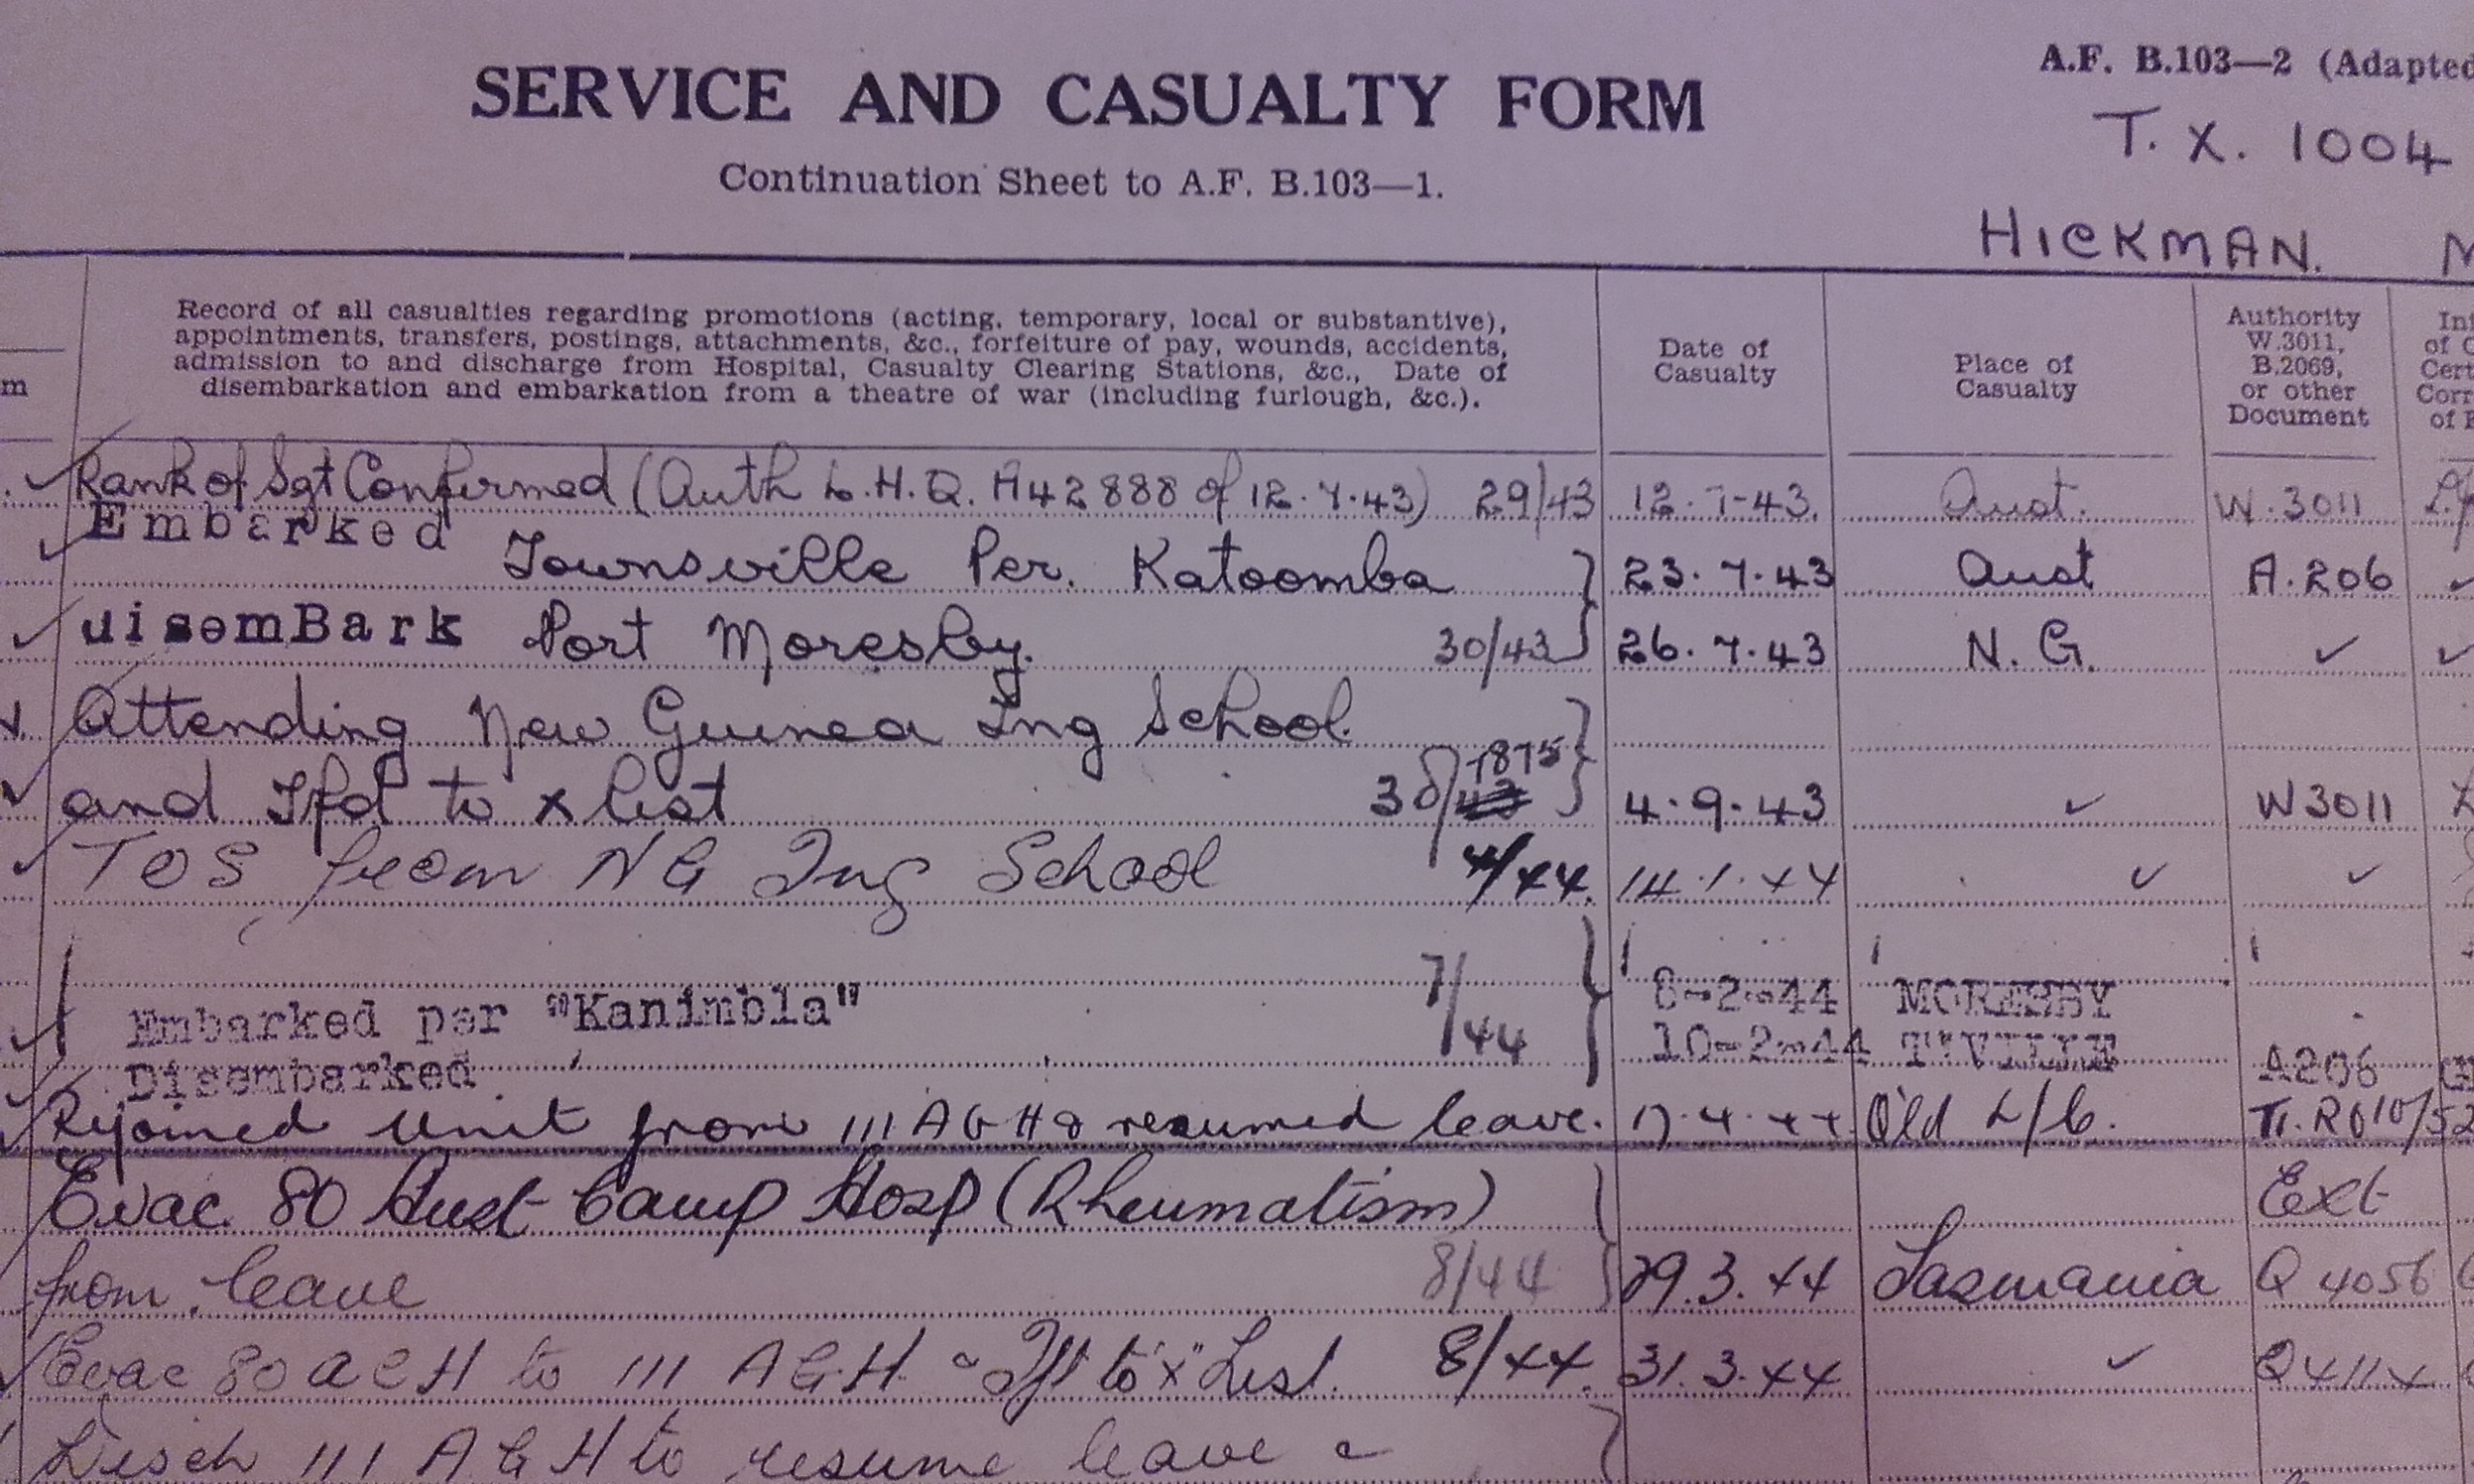 A.F. B.103—2 (Adapted
SERVICE AND CASUALTY FORM
T. X. 1004
Continuation Sheet to A.F. B.103—1.
HICKMAN. M
Record of all casualties regarding promotions (acting, temporary, local or substantive),
appointments, transfers, postings, attachments, &c., forfeiture of pay, wounds, accidents,
admission to and discharge from Hospital, Casualty Clearing Stations, &c., Date of
disembarkation and embarkation from a theatre of war (including furlough, &c.).
Date of
Casualty
Place of
Casualty
Authority
W.3011,
B.2069,
or other
Document
of
Cert
Corr
of
m
Rank of Sgt Confirmed (Auth L.H.Q. A42888 of 12.7.43) 29/43 12-7-43. Aust. W.3011
Embarked Townsville Per. Katoomba 23.7.43 Aust A.206
disemBark Port Moresby. 30/43 26.7.43 N.G.
Attending New Guinea Tng School.
and Tfd to x list 38/43 1875 4.9.43 W3011
TOS from NG Tng School 4/44. 14.1.44
7/44
Embarked per "Kanimbla" 8-2-44 MORESBY
Disembarked 10-2-44 T'VILLE A206
Rejoined Unit from 111 AGH & resumed leave. 17.4.44 Q'ld L/C.
Evac. 80 Aust Camp Hosp (Rheumatism) Ext
from leave 8/44 29.3.44 Tasmania Q4056
Evac 80 ACH to 111 AGH & Tft to "x" List. 8/44. 31.3.44 Q4114
Disch 111 AGH to resume leave &